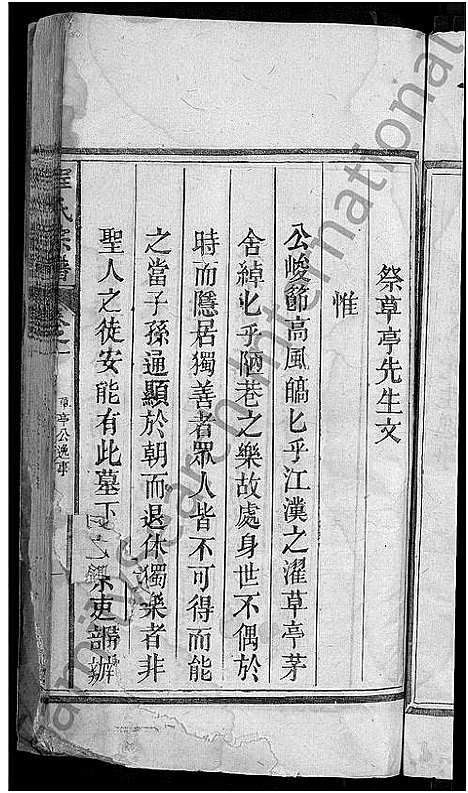 祭草亭先生文
惟
公峻節高風皜匕乎江漢之濯草亭茅
舍綽匕乎陋巷之樂故處身世不偶於
時而隱居獨善者眾人皆不可得而能
之當子孫通顯於朝而退休獨樂者非
聖人之徒安能有此墓下
吏部
氏宗譜
草亭公逸事
International